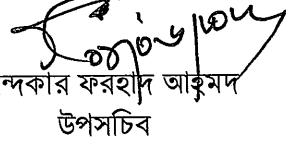 ন্দকার ফরহাদ আহমদ
উপসচিব